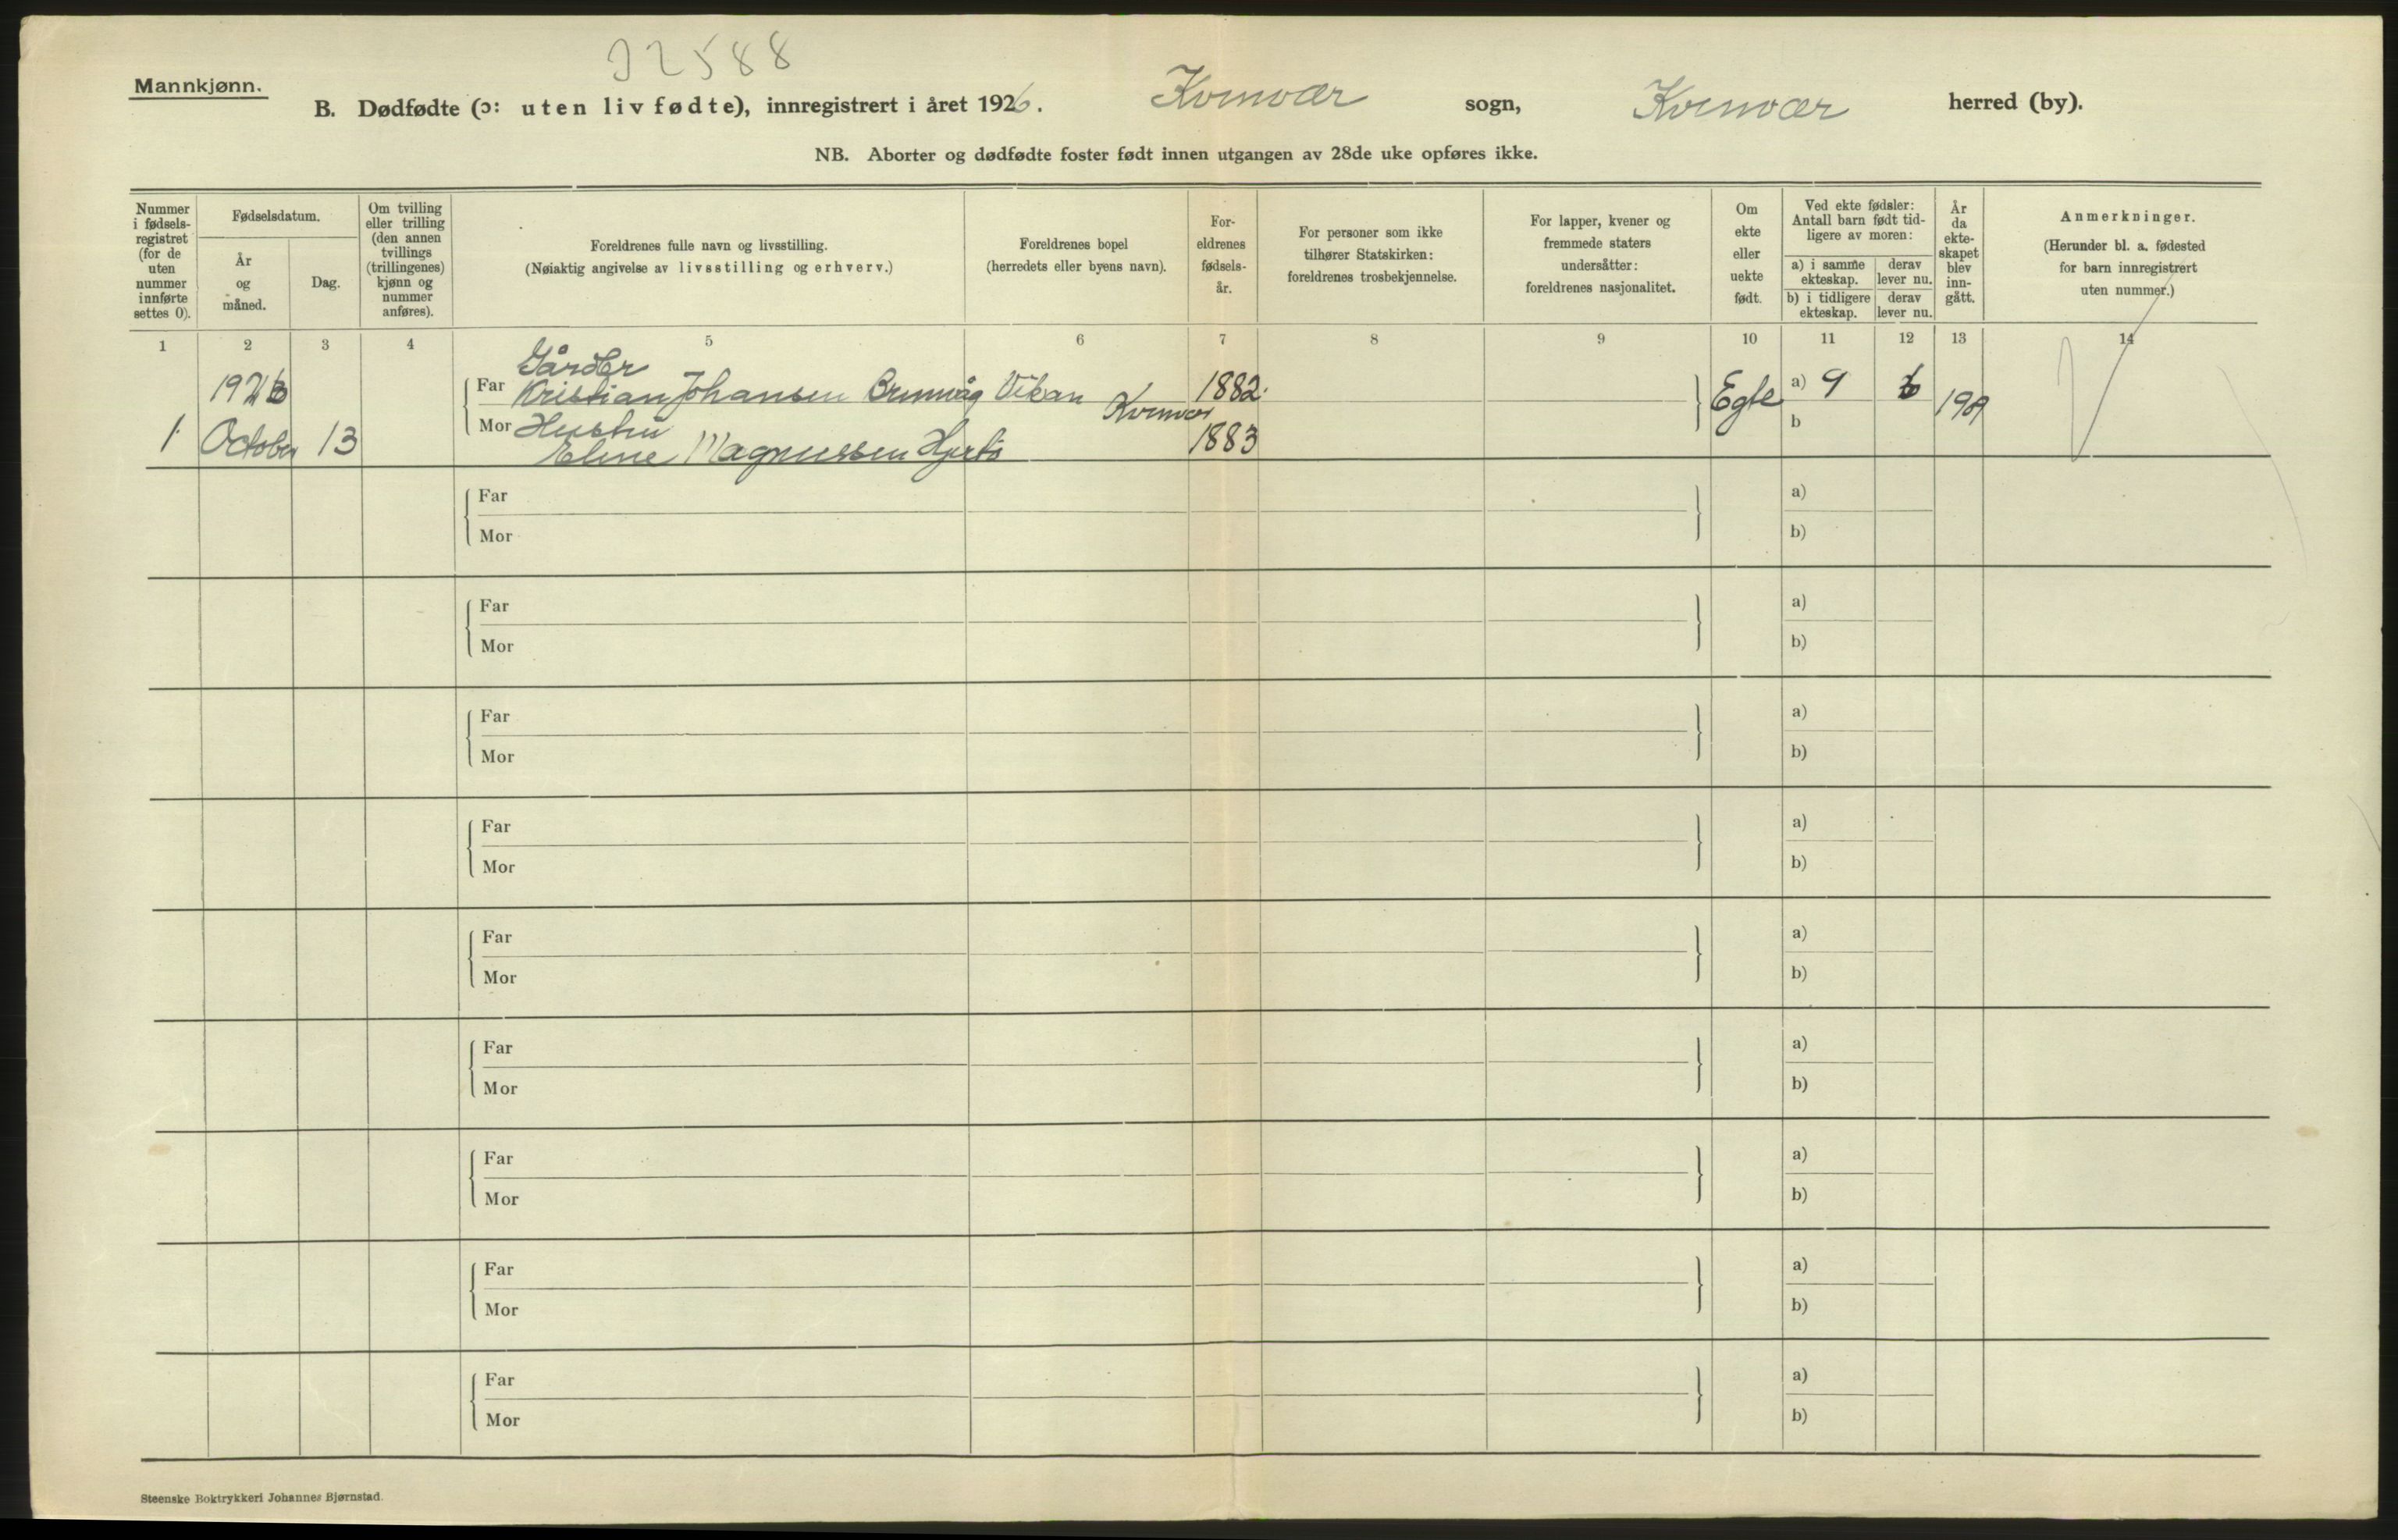 22588
Mannkjønn.
B. Dødfødte (ɔ: uten liv fødte), innregistrert i året 1926. Kvenvær sogn, Kvenvær herred (by).
NB. Aborter og dødfødte foster født innen utgangen av 28de uke opføres ikke.
Nummer
i fødsels-
registret
(for de
uten
nummer
innførte
settes 0).
Fødselsdatum.
År
og
måned.
Dag.
Om tvilling
eller trilling
(den annen
tvillings
(trillingenes)
kjønn og
nummer
anføres).
Foreldrenes fulle navn og livsstilling.
(Nøiaktig angivelse av livsstilling og erhverv.)
Foreldrenes bopel
(herredets eller byens navn).
For-
eldrenes
fødsels-
år.
For personer som ikke
tilhører Statskirken:
foreldrenes trosbekjennelse.
For lapper, kvener og
fremmede staters
undersåtter:
foreldrenes nasjonalitet.
Om
ekte
eller
uekte
født.
Ved ekte fødsler:
Antall barn født tid-
ligere av moren:
a) i samme
ekteskap.
derav
lever nu.
b) i tidligere
ekteskap.
derav
lever nu.
År
da
ekte-
skapet
blev
inn-
gått.
Anmerkninger.
(Herunder bl. a. fødested
for barn innregistrert
uten nummer.)
1 2 3 4 5 6 7 8 9 10 11 12 13 14
Gårdbr
1926 Far Kristian Johansen Brunvåg Vikan 1882. Egte a) 9 6 1909
Kvenvær
Mor Hustru b
1 October 13 Eline Magnussen Hjertø 1883
Far a)
Mor b)
Far a)
Mor b)
Far a)
Mor b)
Far a)
Mor b)
Far a)
Mor b)
Far a)
Mor b)
Far a)
Mor b)
Far a)
Mor b)
Far a)
Mor b)
Steenske Boktrykkeri Johannes Bjørnstad.